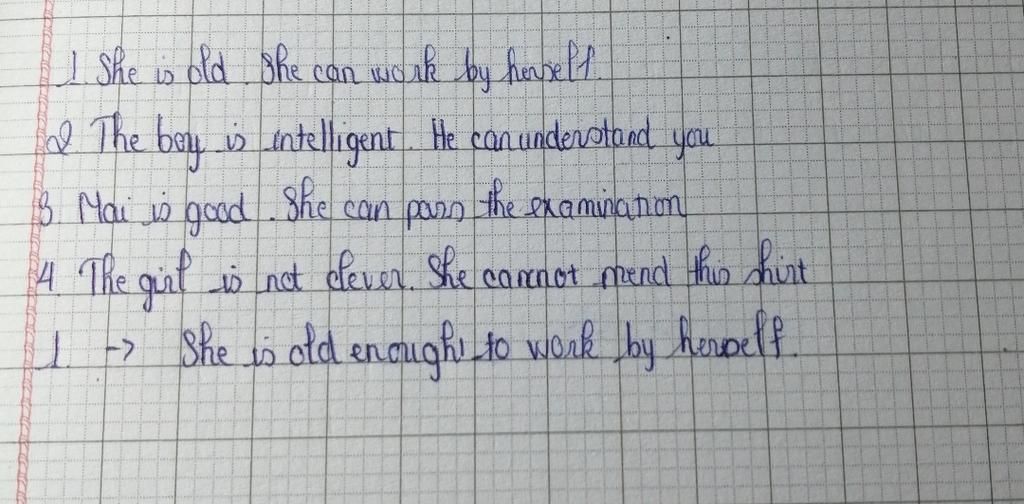 1. She is old. She can work by herself.
2 The boy is intelligent. He can understand you
3. Mai is good. She can pass the examination
4. The girl is not clever. She cannot mend this shirt
1. -> She is old enough to work by herself.